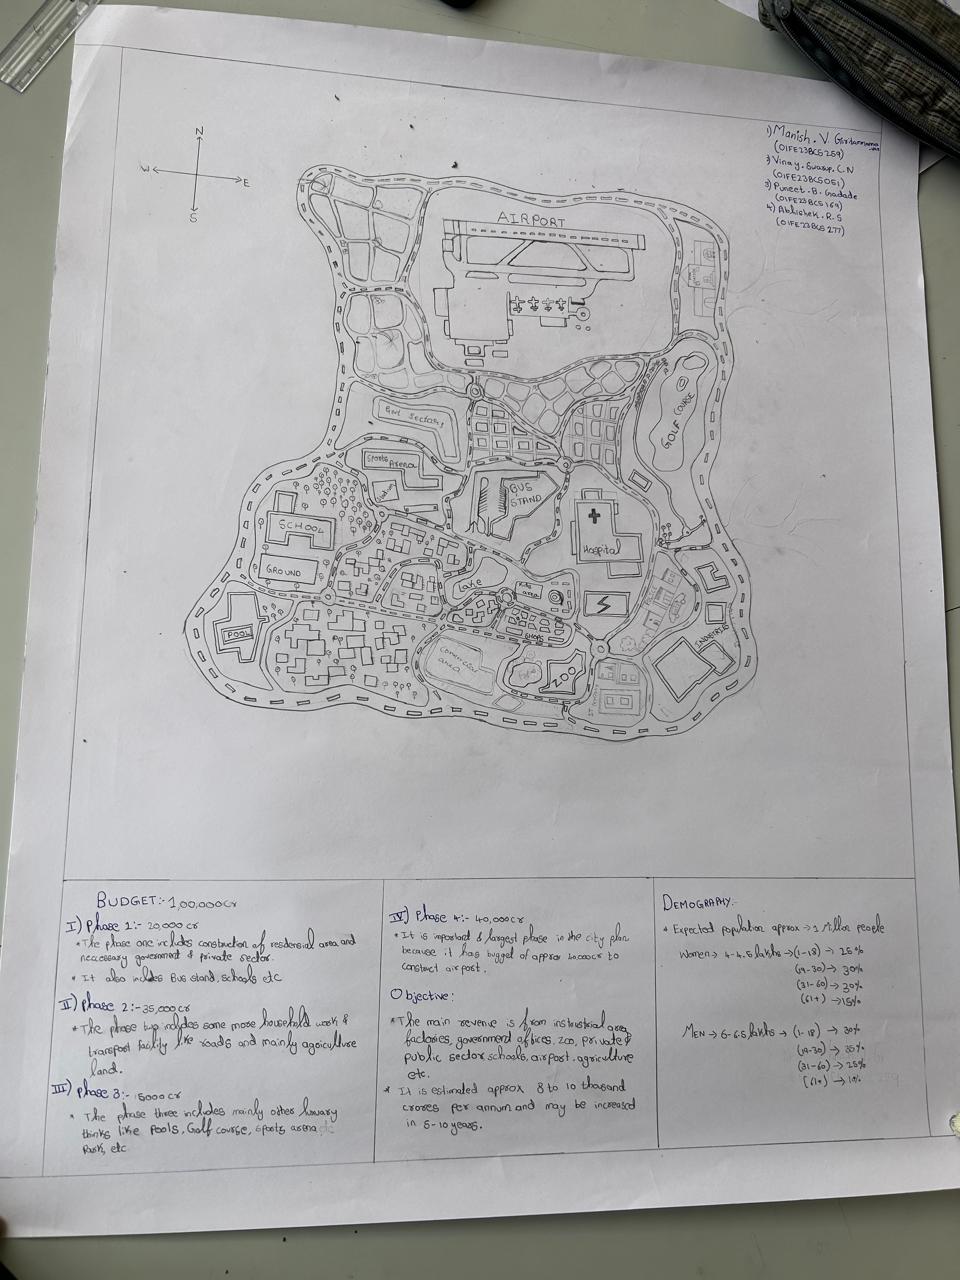 N
W
E
S
1) Manish. V
(01FE23BCS259)
2) Vinay. Swarup. C.N
(01FE23BCS051)
3) Puneet. B. Gadade
(01FE23BCS169)
4) Abhishek. R. S
(01FE23BCS277)
AIRPORT
GOLF COURSE
Sports
Arena
BUS
STAND
SCHOOL
GROUND
Hospital
Lake
Kids
area
POOL
SHOPS
INDUSTRIAL
Commercial
area
ZOO
BUDGET:- 1,00,000cr
I) Phase 1:- 20,000 cr
* The phase one includes construction of residensial area and
neccesary government & private sector.
* It also includes Bus stand, schools etc
II) Phase 2:- 35,000 cr
* The phase two includes some more household work &
transport facility like roads and mainly agriculture
land.
III) Phase 3:- 5000 cr
* The phase three includes mainly other luxuary
thinks like pools, Golf course, sports arena etc
Park, etc
IV) Phase 4:- 40,000cr
* It is important & largest phase in the city plan
because it has bugget of approx 40000cr to
construct airport.
Objective:
* The main revenue is from instustrial area,
factories, government offices, zoo, private &
public sector schools, airport, agriculture
etc.
* It is estimated approx 8 to 10 thousand
crores per annum and may be increased
in 5-10 years.
DEMOGRAPHY:-
* Expected population approx → 1 Million people
Women → 4-4.5 lakhs → (1-18) → 25%
(19-30) → 30%
(31-60) → 30%
(61+) → 15%
MEN → 6-6.5 lakhs → (1-18) → 30%
(19-30) → 35%
(31-60) → 25%
(61+) → 10%